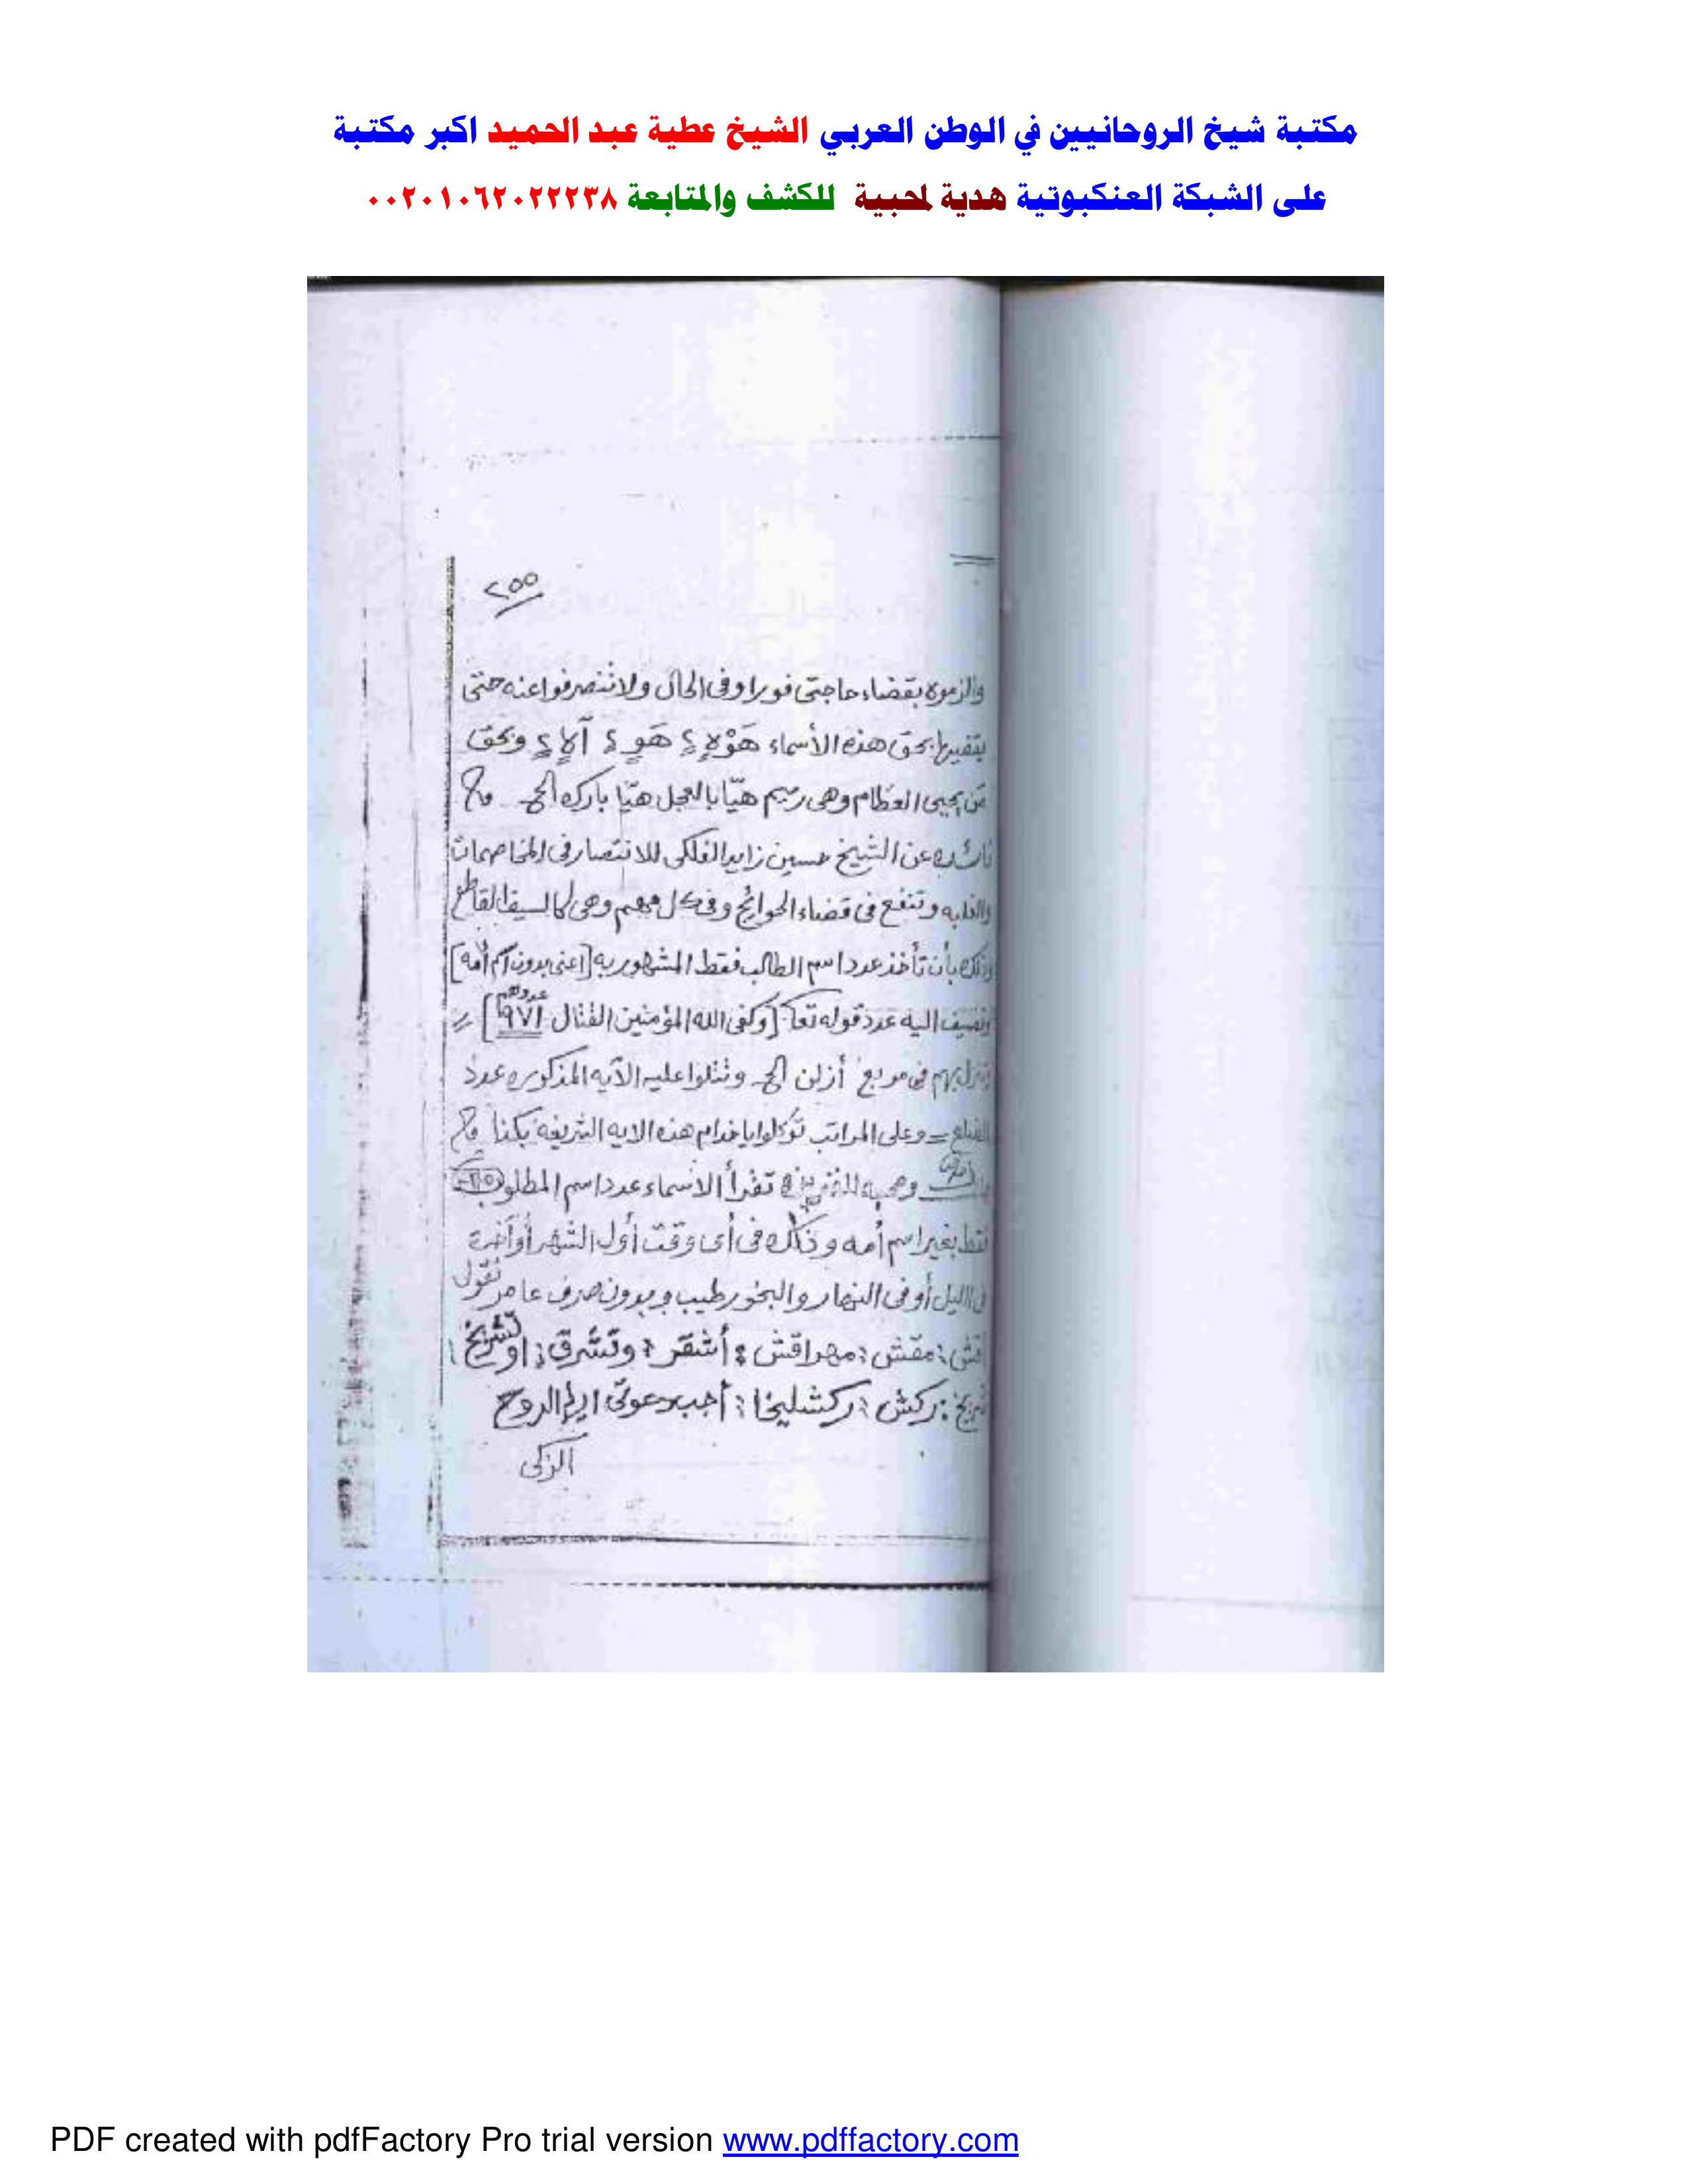 مكتبة شيخ الروحانيين في الوطن العربي الشيخ عطية عبد الحميد اكبر مكتبة
على الشبكة العنكبوتية هدية لمحبية للكشف والمتابعة ٠٠٢٠١٠٦٢٠٢٢٢٣٨
٢٥٥
والزموه بقضاء حاجتى فورا وفى الحال ولا تنصرفوا عنه حتى
يقضيها بحق هذه الأسماء وبحق
من يحيى العظام وهى رميم هيّا بالعجل هيّا بارك الخ
فائده عن الشيخ حسين زايد الفلكى للانتصار فى المخاصمات
والغلبه وتنفع فى قضاء الحوائج وفى كل مهم وهى كالسيف القاطع
وذلك بأن تأخذ عدد اسم الطالب فقط المشهور به [اعنى بدون اسم أمه]
وتضيف اليه عدد قوله تعا [وكفى الله المؤمنين القتال عددهم ٩٧١] =
وتنزل بهم فى مربع أزلن الخ وتتلوا عليه الآيه المذكوره عدد
الضلع = وعلى المراتب توكلوا يا خدام هذه الايه الشريفه بكذا
تقرأ الاسماء عدد اسم المطلوب
فقط بغير اسم أمه وذلك فى أى وقت أول الشهر أو آخره
فى الليل أو فى النهار والبخور طيب وبدون صرف عامر تقول
مقش : مهراقش : أشقر : وتشرق : او تشريخ :
ركش : ركشليخا : أجب دعوتى ايها الروح
الزكى
PDF created with pdfFactory Pro trial version www.pdffactory.com